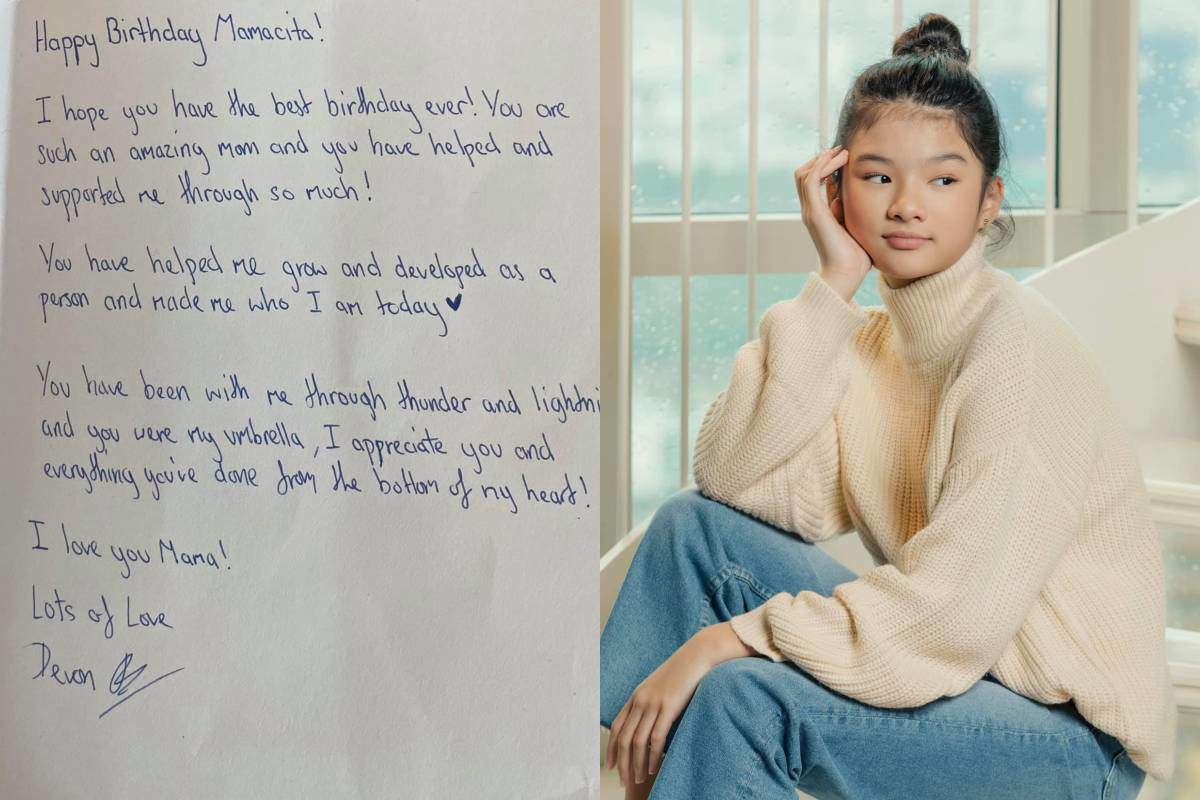 Happy Birthday Mamacita!
I hope you have the best birthday ever! You are
such an amazing mom and you have helped and
supported me through so much!
You have helped me grow and developed as a
person and made me who I am today♥
You have been with me through thunder and lightni
and you were my umbrella, I appreciate you and
everything you've done from the bottom of my heart!
I love you Mama!
Lots of Love
Devon